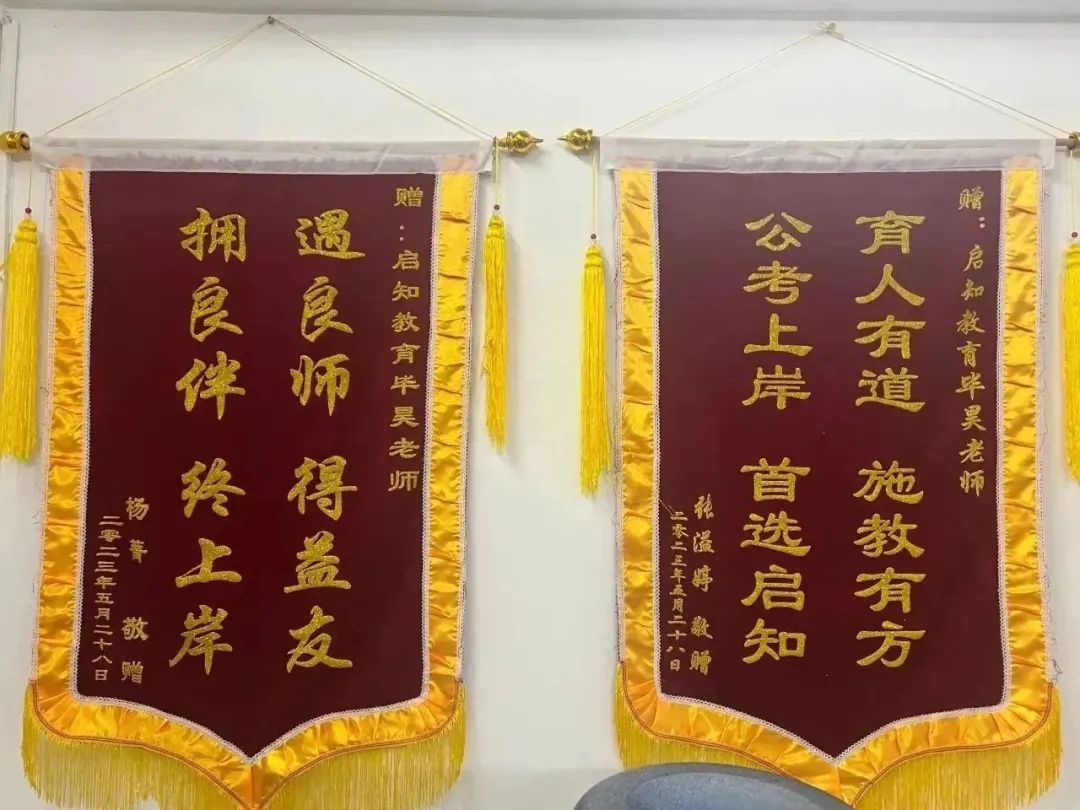 赠：启知教育毕昊老师
遇良师 得益友
拥良伴 终上岸
杨菁 敬赠
二零二三年五月二十八日
赠：启知教育毕昊老师
育人有道 施教有方
公考上岸 首选启知
张溢婷 敬赠
二零二三年五月二十八日